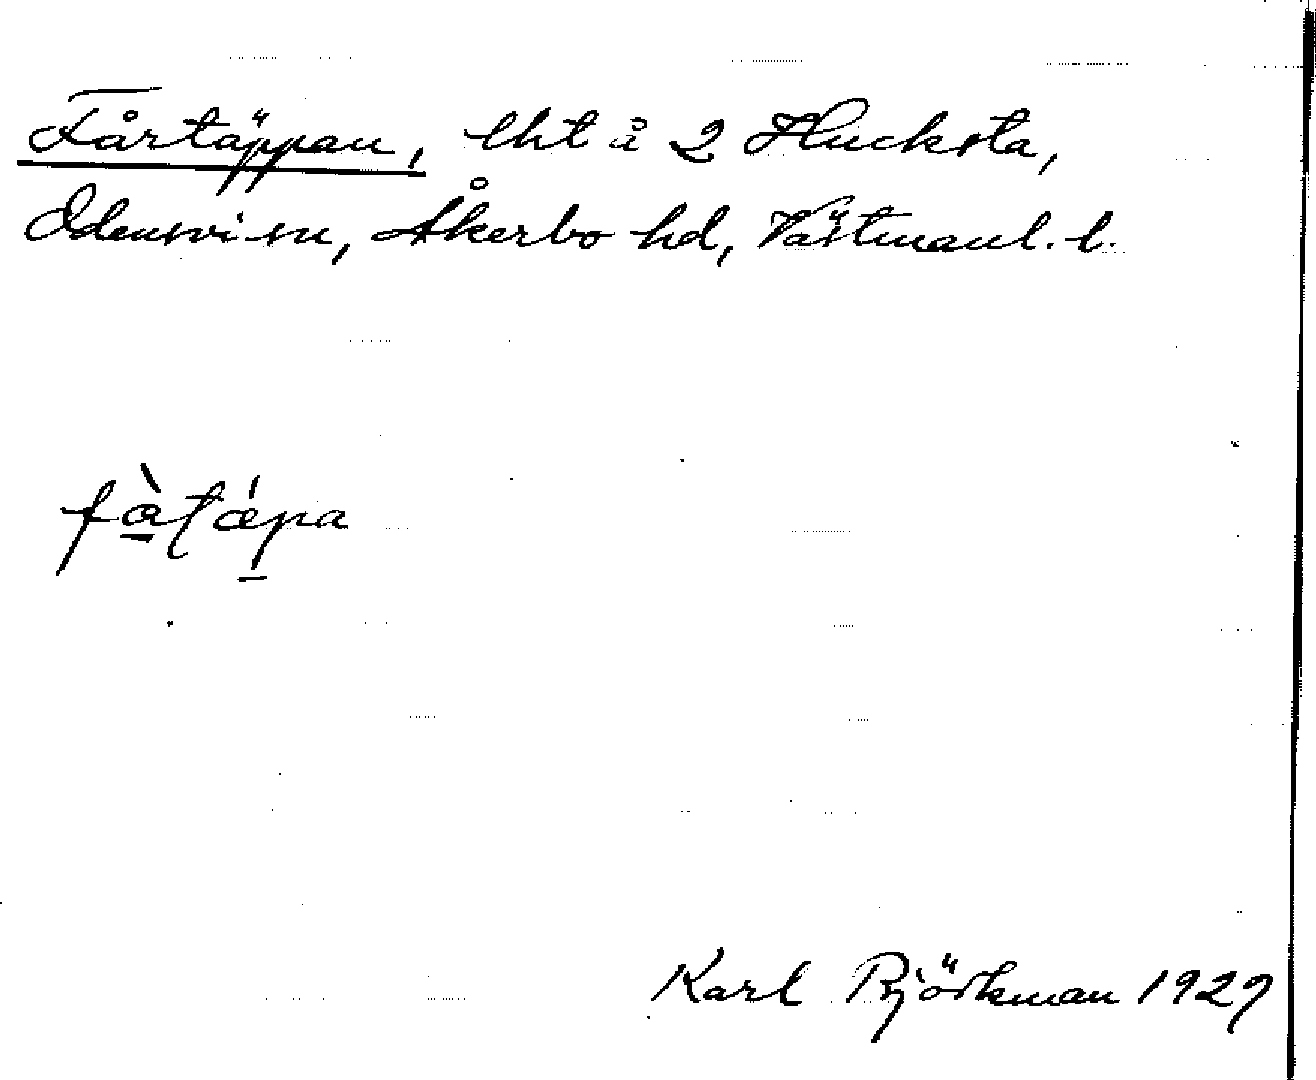 Fårtäppan, lht å 2 Hucksta,
Odensvi sn, Åkerbo hd, Västmanl. l.
fàṯápa
Karl Björkman 1929